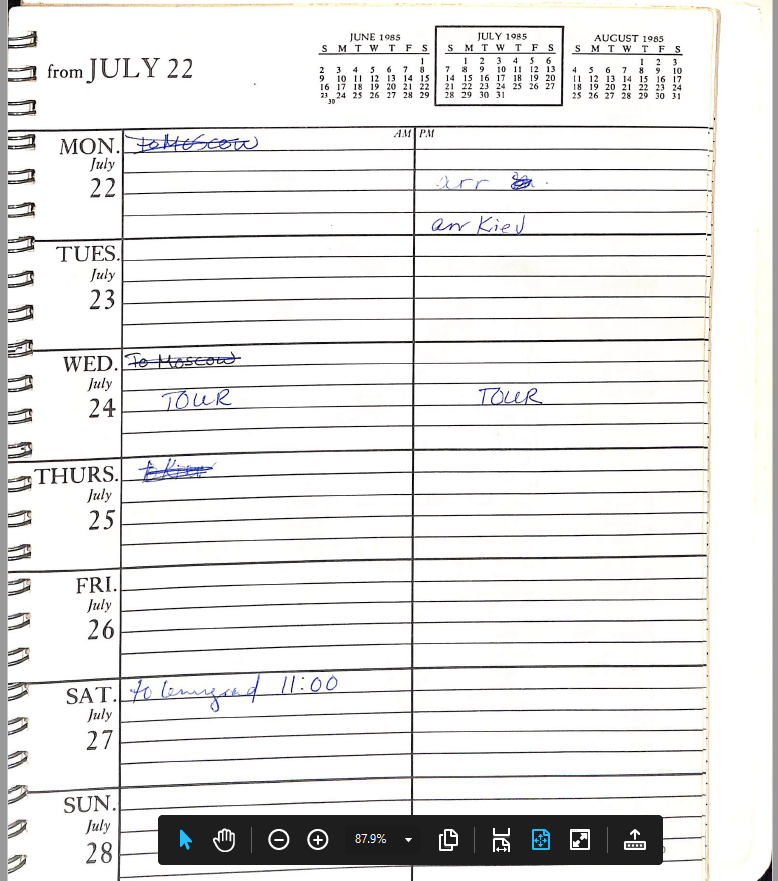 from JULY 22
JUNE 1985
S M T W T F S
1
2 3 4 5 6 7 8
9 10 11 12 13 14 15
16 17 18 19 20 21 22
23 24 25 26 27 28 29
30
JULY 1985
S M T W T F S
1 2 3 4 5 6
7 8 9 10 11 12 13
14 15 16 17 18 19 20
21 22 23 24 25 26 27
28 29 30 31
AUGUST 1985
S M T W T F S
1 2 3
4 5 6 7 8 9 10
11 12 13 14 15 16 17
18 19 20 21 22 23 24
25 26 27 28 29 30 31
AM PM
MON. To Moscow
July
22 arr
arr Kiev
TUES.
July
23
WED. To Moscow
July
24 TOUR TOUR
THURS. to Kiev
July
25
FRI.
July
26
SAT. to Leningrad 11:00
July
27
SUN.
July
28
87.9%